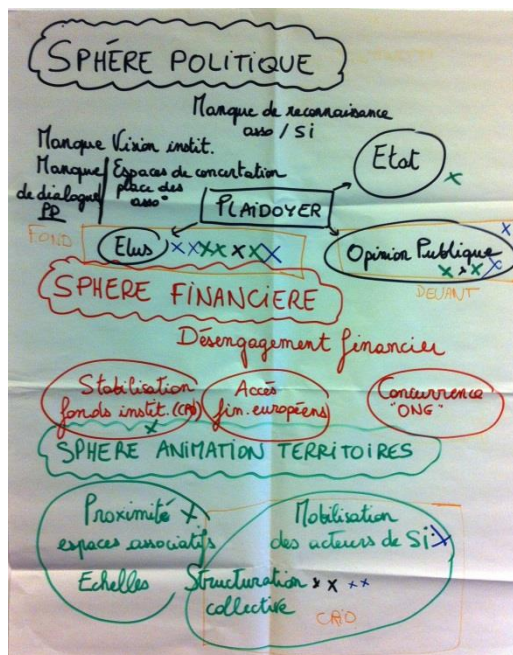 SPHÈRE POLITIQUE
Manque de reconnaissance
asso / Si
Manque Vision instit.
Manque
de dialogue
PP
Espaces de concertation
place des
asso°
Etat
PLAIDOYER
FOND
Elus
Opinion Publique
DEVANT
SPHERE FINANCIERE
Désengagement financier
Stabilisation
fonds instit. (CRB)
Accès
fin. européens
Concurrence
"ONG"
SPHÈRE ANIMATION TERRITOIRES
Proximité
espaces associatifs
Echelles
Mobilisation
des acteurs de Si
Structuration
collective